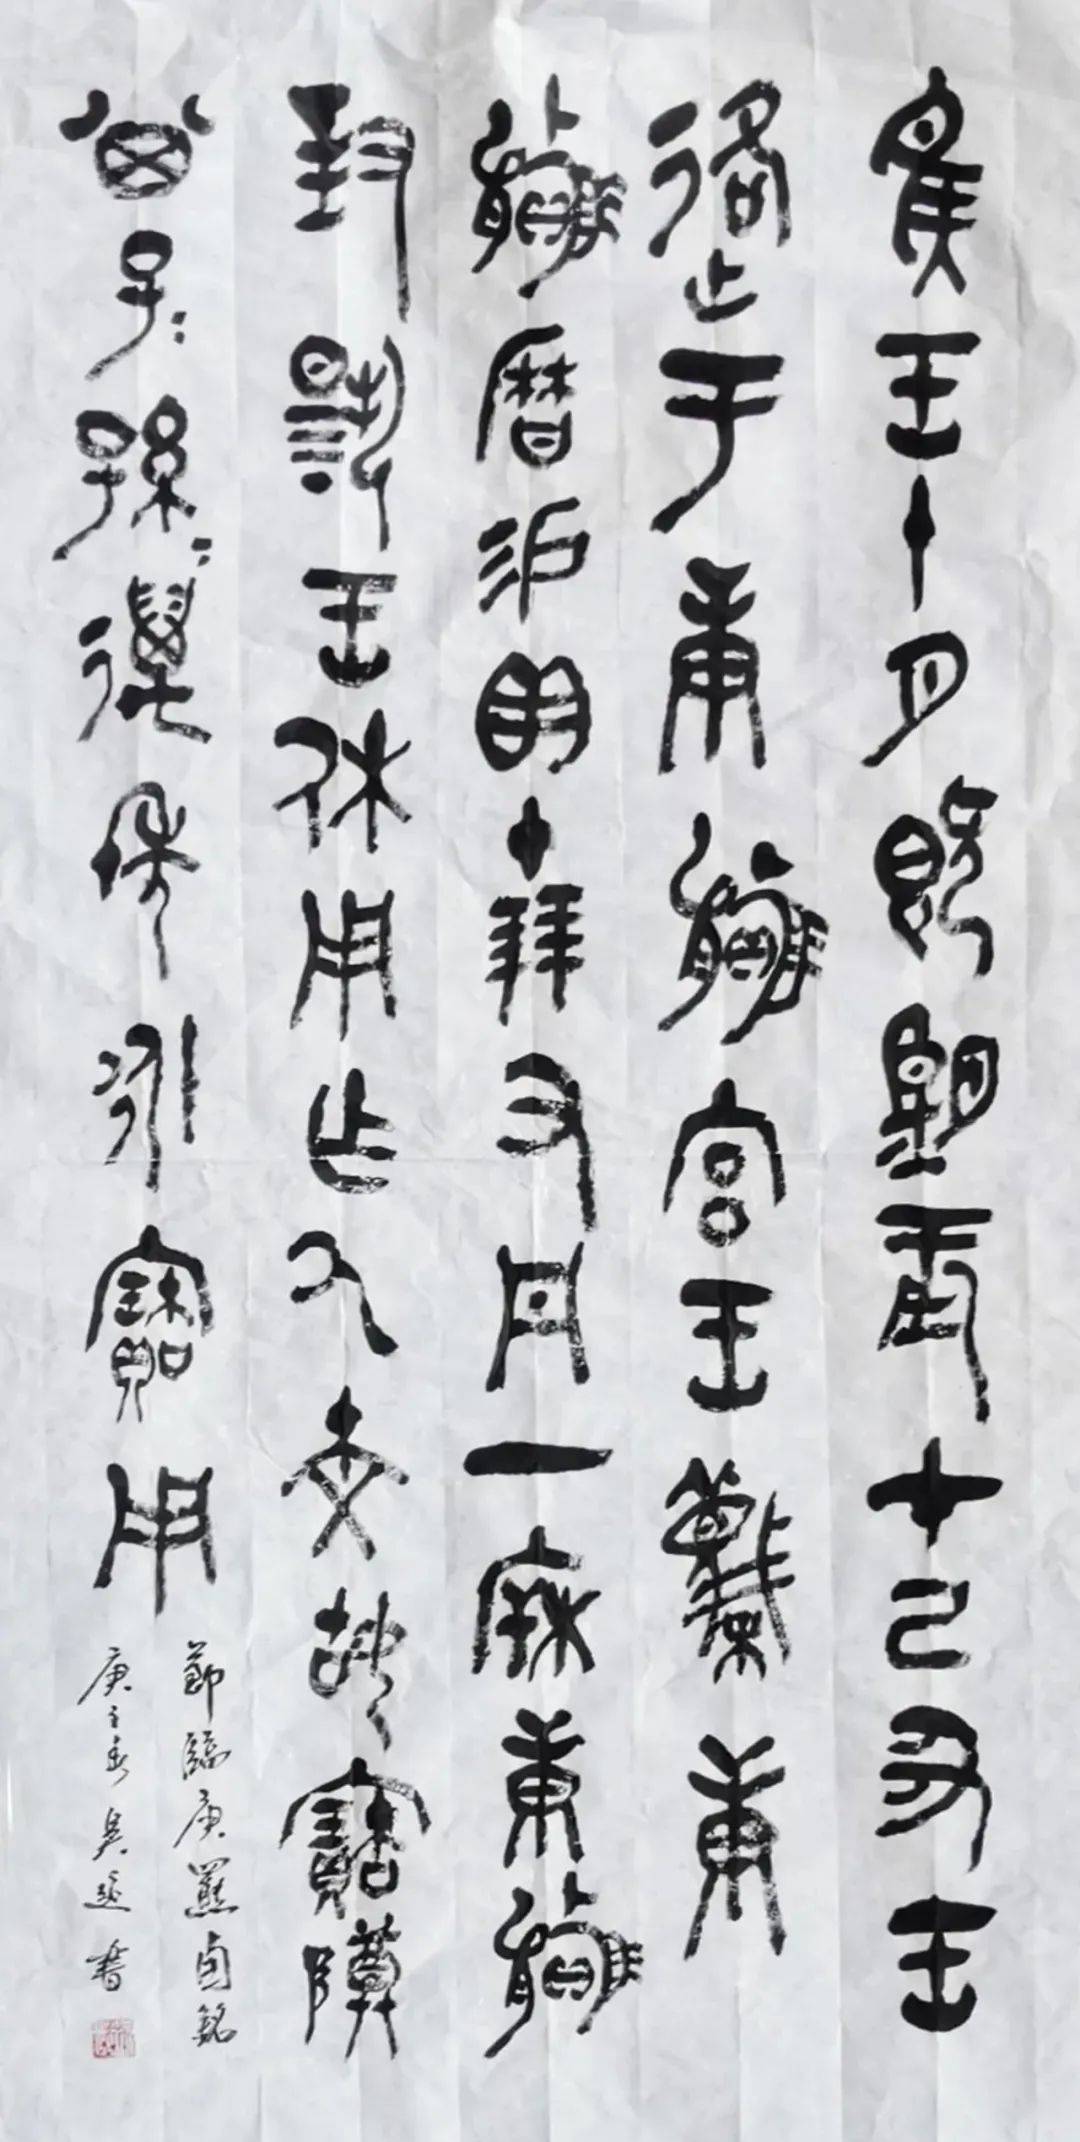 隹王十月既望辰才己丑王
各于庚嬴宮王蔑庚
嬴曆易貝十朋又丹一㭒庚嬴
對揚王休用乍氒文姑寶尊
子=孫=萬年永寶用
節臨庚羆卣銘
庚子春 吳 書